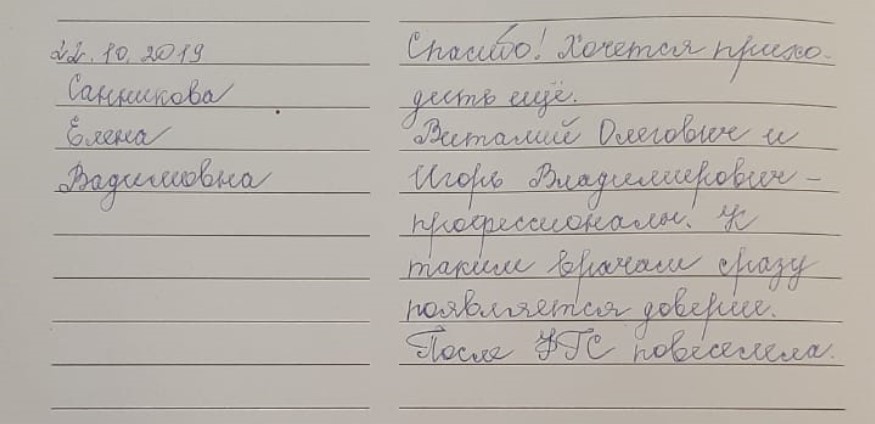 22.10.2019
Санникова
Елена
Вадимовна
Спасибо! Хочется прихо-
дить ещё.
Виталий Олегович и
Игорь Владимирович -
профессионалы. К
таким врачам сразу
появляется доверие.
После УГС повеселела.